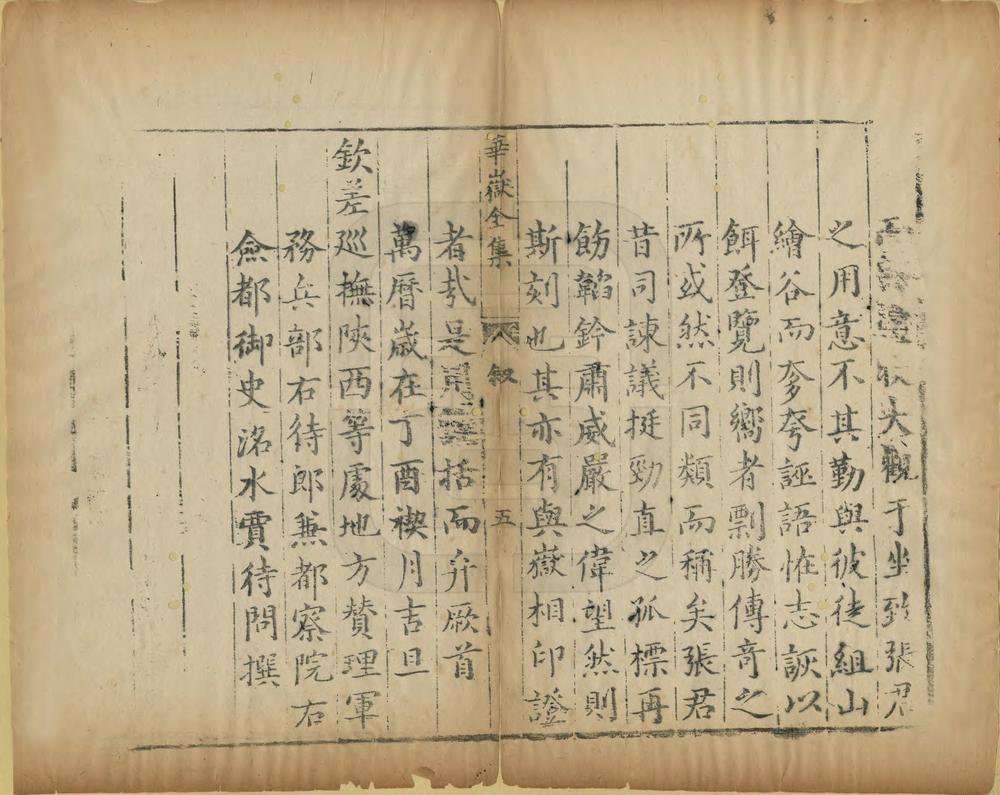 大觀于坐致張君
之用意不其勤與彼徒組山
繪谷而奓夸誣語恠志詼以
餌登覽則嚮者剽勝傳奇之
所或然不同類而稱矣張君
昔司諫議挺勁直之孤標再
飭韜鈐肅威嚴之偉望然則
斯刻也其亦有與嶽相印證
華嶽全集
叙
五
者哉是括而弁厥首
萬曆歲在丁酉禊月吉旦
欽差巡撫陝西等處地方贊理軍
務兵部右侍郎兼都察院右
僉都御史洺水賈待問撰